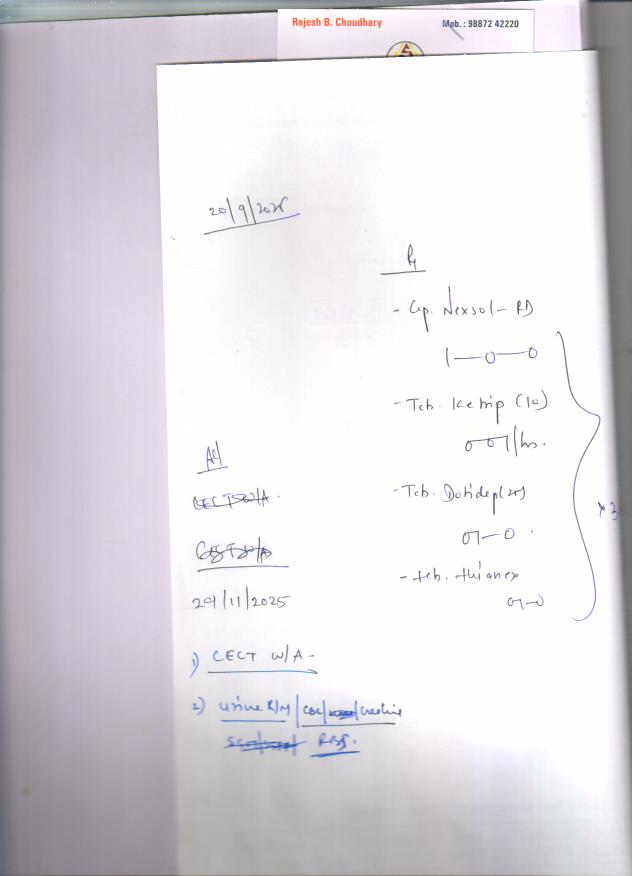 Rajesh B. Choudhary
Mob. : 98872 42220
20/9/2025
Rx
- Cap. Nexsol - RD
1—0—0
- Tab. Ketrip (10)
0 0 1/hs.
- Tab. Dotidep (25)
01—0
- tab. thianex
01—0
× 3
Ad
CECT W/A.
29/11/2025
1) CECT W/A -
2) urine R/M / CBC / / creatine
RBS.